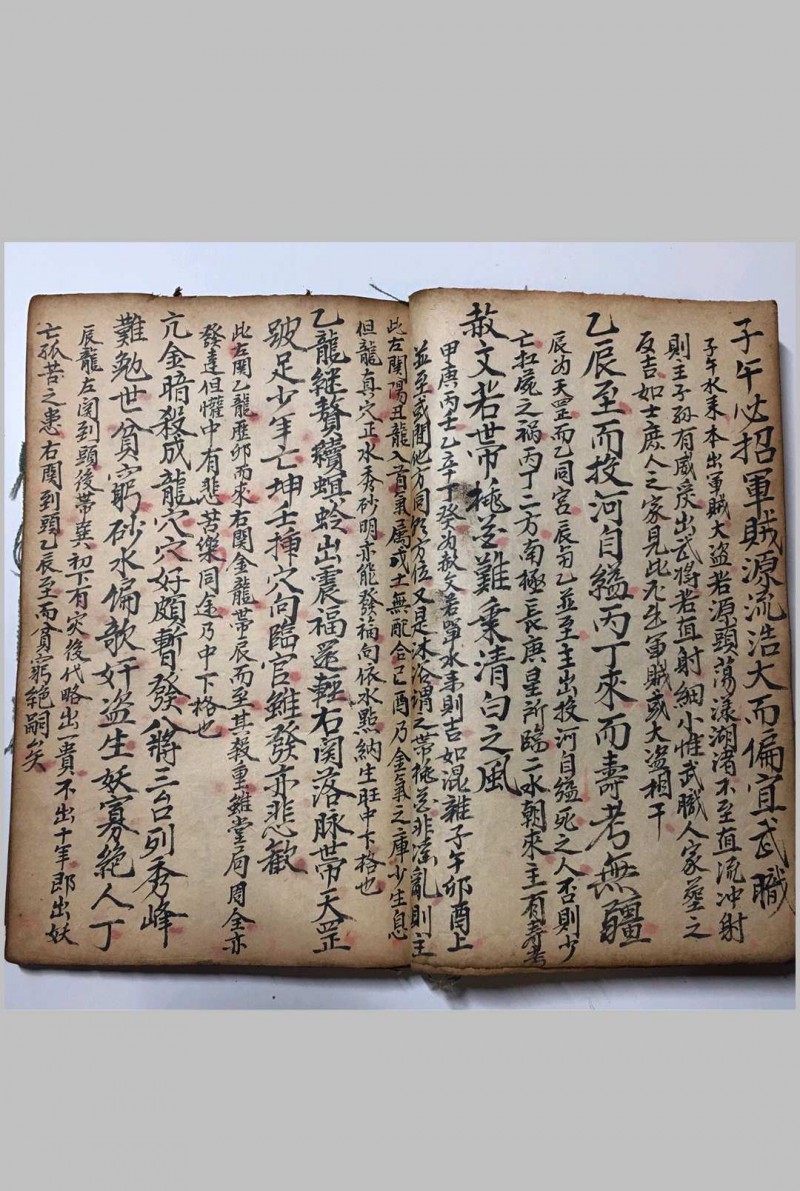 子午必招軍賊源流浩大而偏宜武職
子午水來本出軍賊大盗若源頭蕩漾湖渚不至直流冲射
則主子孫有威受出武將若直射細小惟武職人家塟之
反吉如士庶人之家見此不生軍賊或大盗相干
乙辰至而投河自縊丙丁來而壽考無疆
辰为天罡而乙同宮辰與乙並至主出投河自縊死之人否則少
亡扛屍之禍丙丁二方南極長庚星所臨二水朝來主有壽考
赦文若帶桃花難乘清白之風
甲庚丙壬乙辛丁癸为赦文若單水來則吉如混雜子午卯酉上
並至或間他方同於方位又是沐浴謂之帶桃花非淫亂則主
此左関陽丑龍入首氣屬戍土無配合已酉乃金氣之庫少生息
但龍真穴正水秀砂明亦能發福向依水㸃納生旺中下格也
乙龍继贅續螟蛉出震福還輕右関落脉帶天罡
跛足少年亡坤壬揷穴向臨官雖發亦悲歡
此左関乙龍歷卯而來右関金龍帶辰而至其殺重雖堂局周全亦
發達但懽中有悲苦樂同全乃中下格也
亢金暗殺成龍穴穴好頗暫發八將三台列秀峰
難勉世貧窮砂水偏欹奸盗生妖寡絶人丁
辰龍左関到頭後帶巽初下有灾後代略出一貴不出十年即出妖
亡孤苦之患右関到頭乙辰至而貧窮絶嗣矣